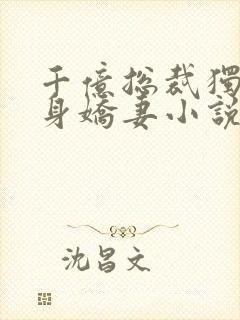 千億總裁獨
身嬌妻小説
沈昌文